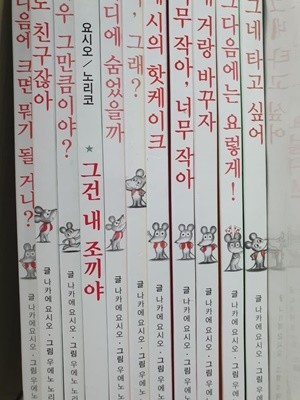 다음에 크면 뭐가 될 거니?
글 나카에 요시오·그림 우에노
도 친구잖아
글 나카에 요시오·그림 우에노 노리
우 그만큼이야?
글 나카에 요시오·그림 우에노 노
요시오 / 노리코
그건 내 조끼야
디에 숨었을까
글 나카에 요시오·그림 우에노 노
, 그래?
글 나카에 요시오·그림 우에노 노
시의 핫케이크
글 나카에 요시오·그림 우에노
무 작아, 너무 작아
글 나카에 요시오·그림 우에노 노
거랑 바꾸자
글 나카에 요시오·그림 우에노
그다음에는 요렇게!
글 나카에 요시오·그림 우에노 노
그네 타고 싶어
글 나카에 요시오·그림 우에노 노